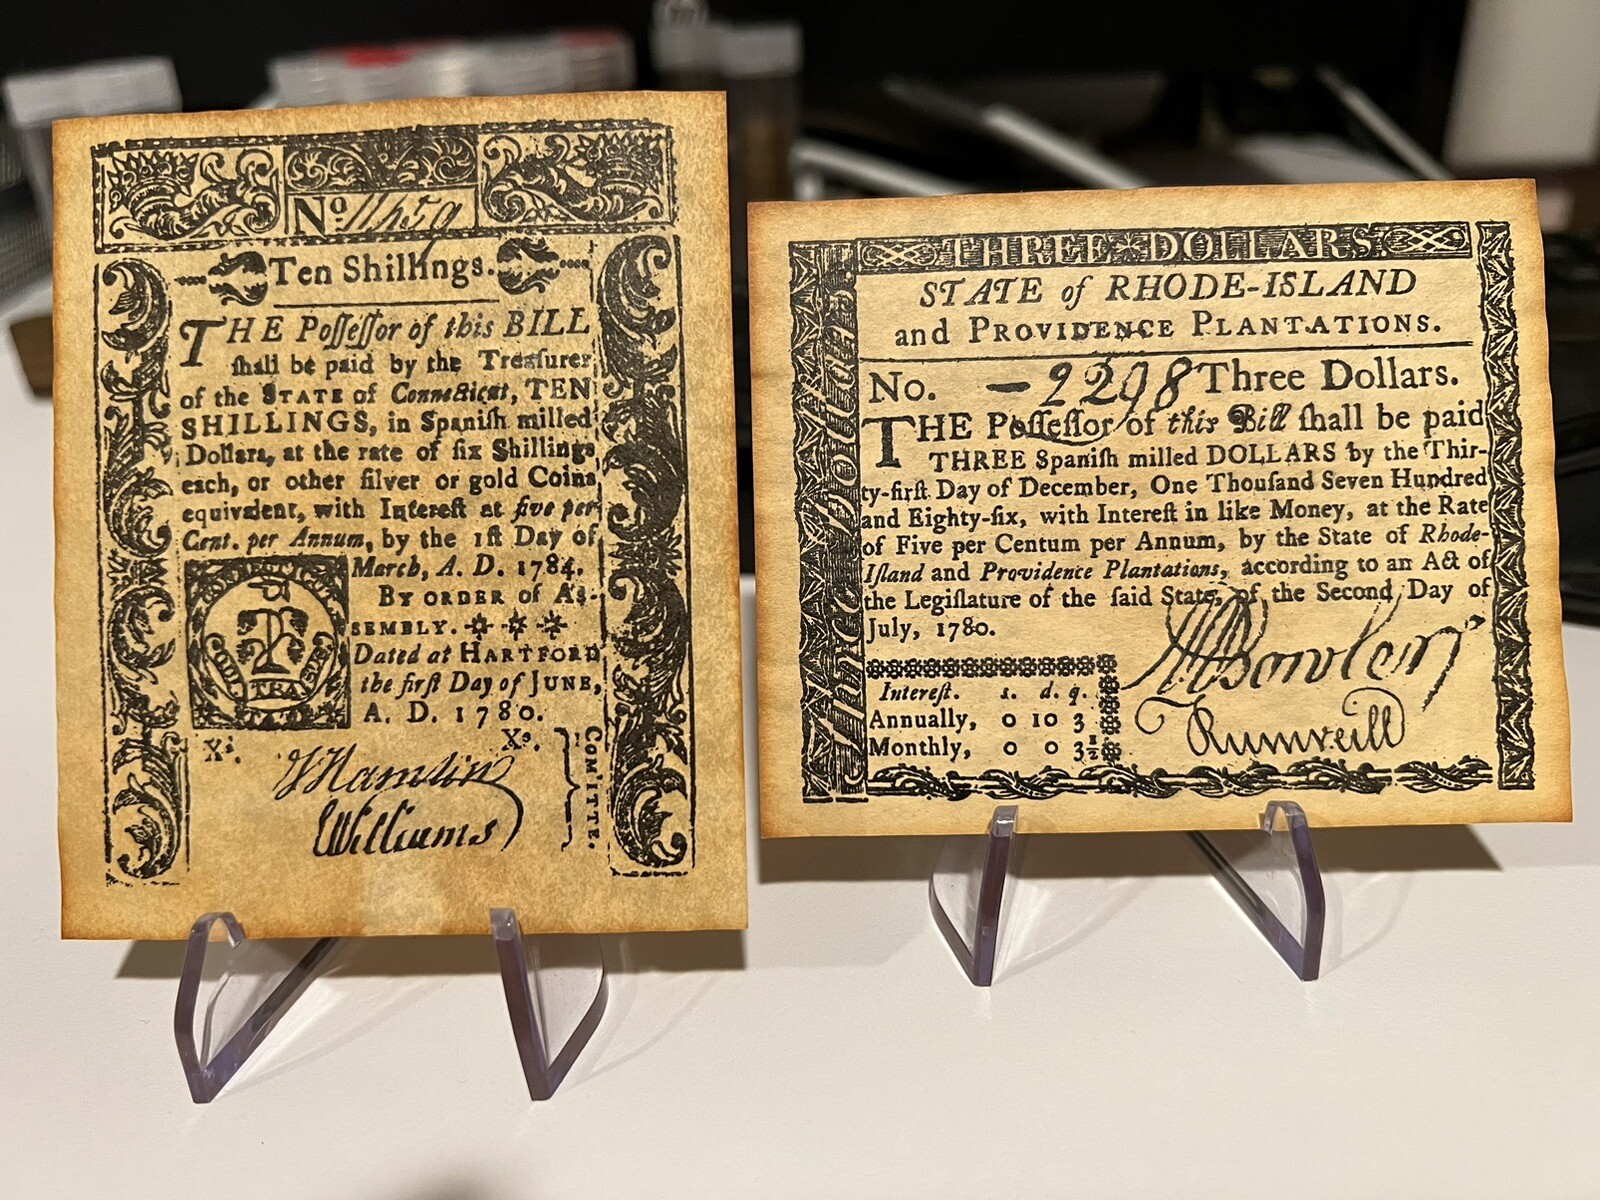 No. 11459
Ten Shillings.
THE Poſſeſſor of this BILL
ſhall be paid by the Treaſurer
of the STATE of Connecticut, TEN
SHILLINGS, in Spaniſh milled
Dollars, at the rate of ſix Shillings
each, or other ſilver or gold Coins
equivalent, with Intereſt at five per
Cent. per Annum, by the 1ſt Day of
March, A. D. 1784.
BY ORDER of AS-
SEMBLY.
Dated at HARTFORD
the firſt Day of JUNE,
A. D. 1780.
Xs. Xs.
COMITTE.
J Hamlin
E Williams
THREE DOLLARS.
Three Dollars.
STATE of RHODE-ISLAND
and PROVIDENCE PLANTATIONS.
No. -2298 Three Dollars.
THE Poſſeſſor of this Bill ſhall be paid
THREE Spaniſh milled DOLLARS by the Thir-
ty-firſt Day of December, One Thouſand Seven Hundred
and Eighty-ſix, with Intereſt in like Money, at the Rate
of Five per Centum per Annum, by the State of Rhode-
Iſland and Providence Plantations, according to an Act of
the Legiſlature of the ſaid State, of the Second Day of
July, 1780.
Intereſt. s. d. q.
Annually, 0 10 3
Monthly, 0 0 3½
Bowler
Rumreill